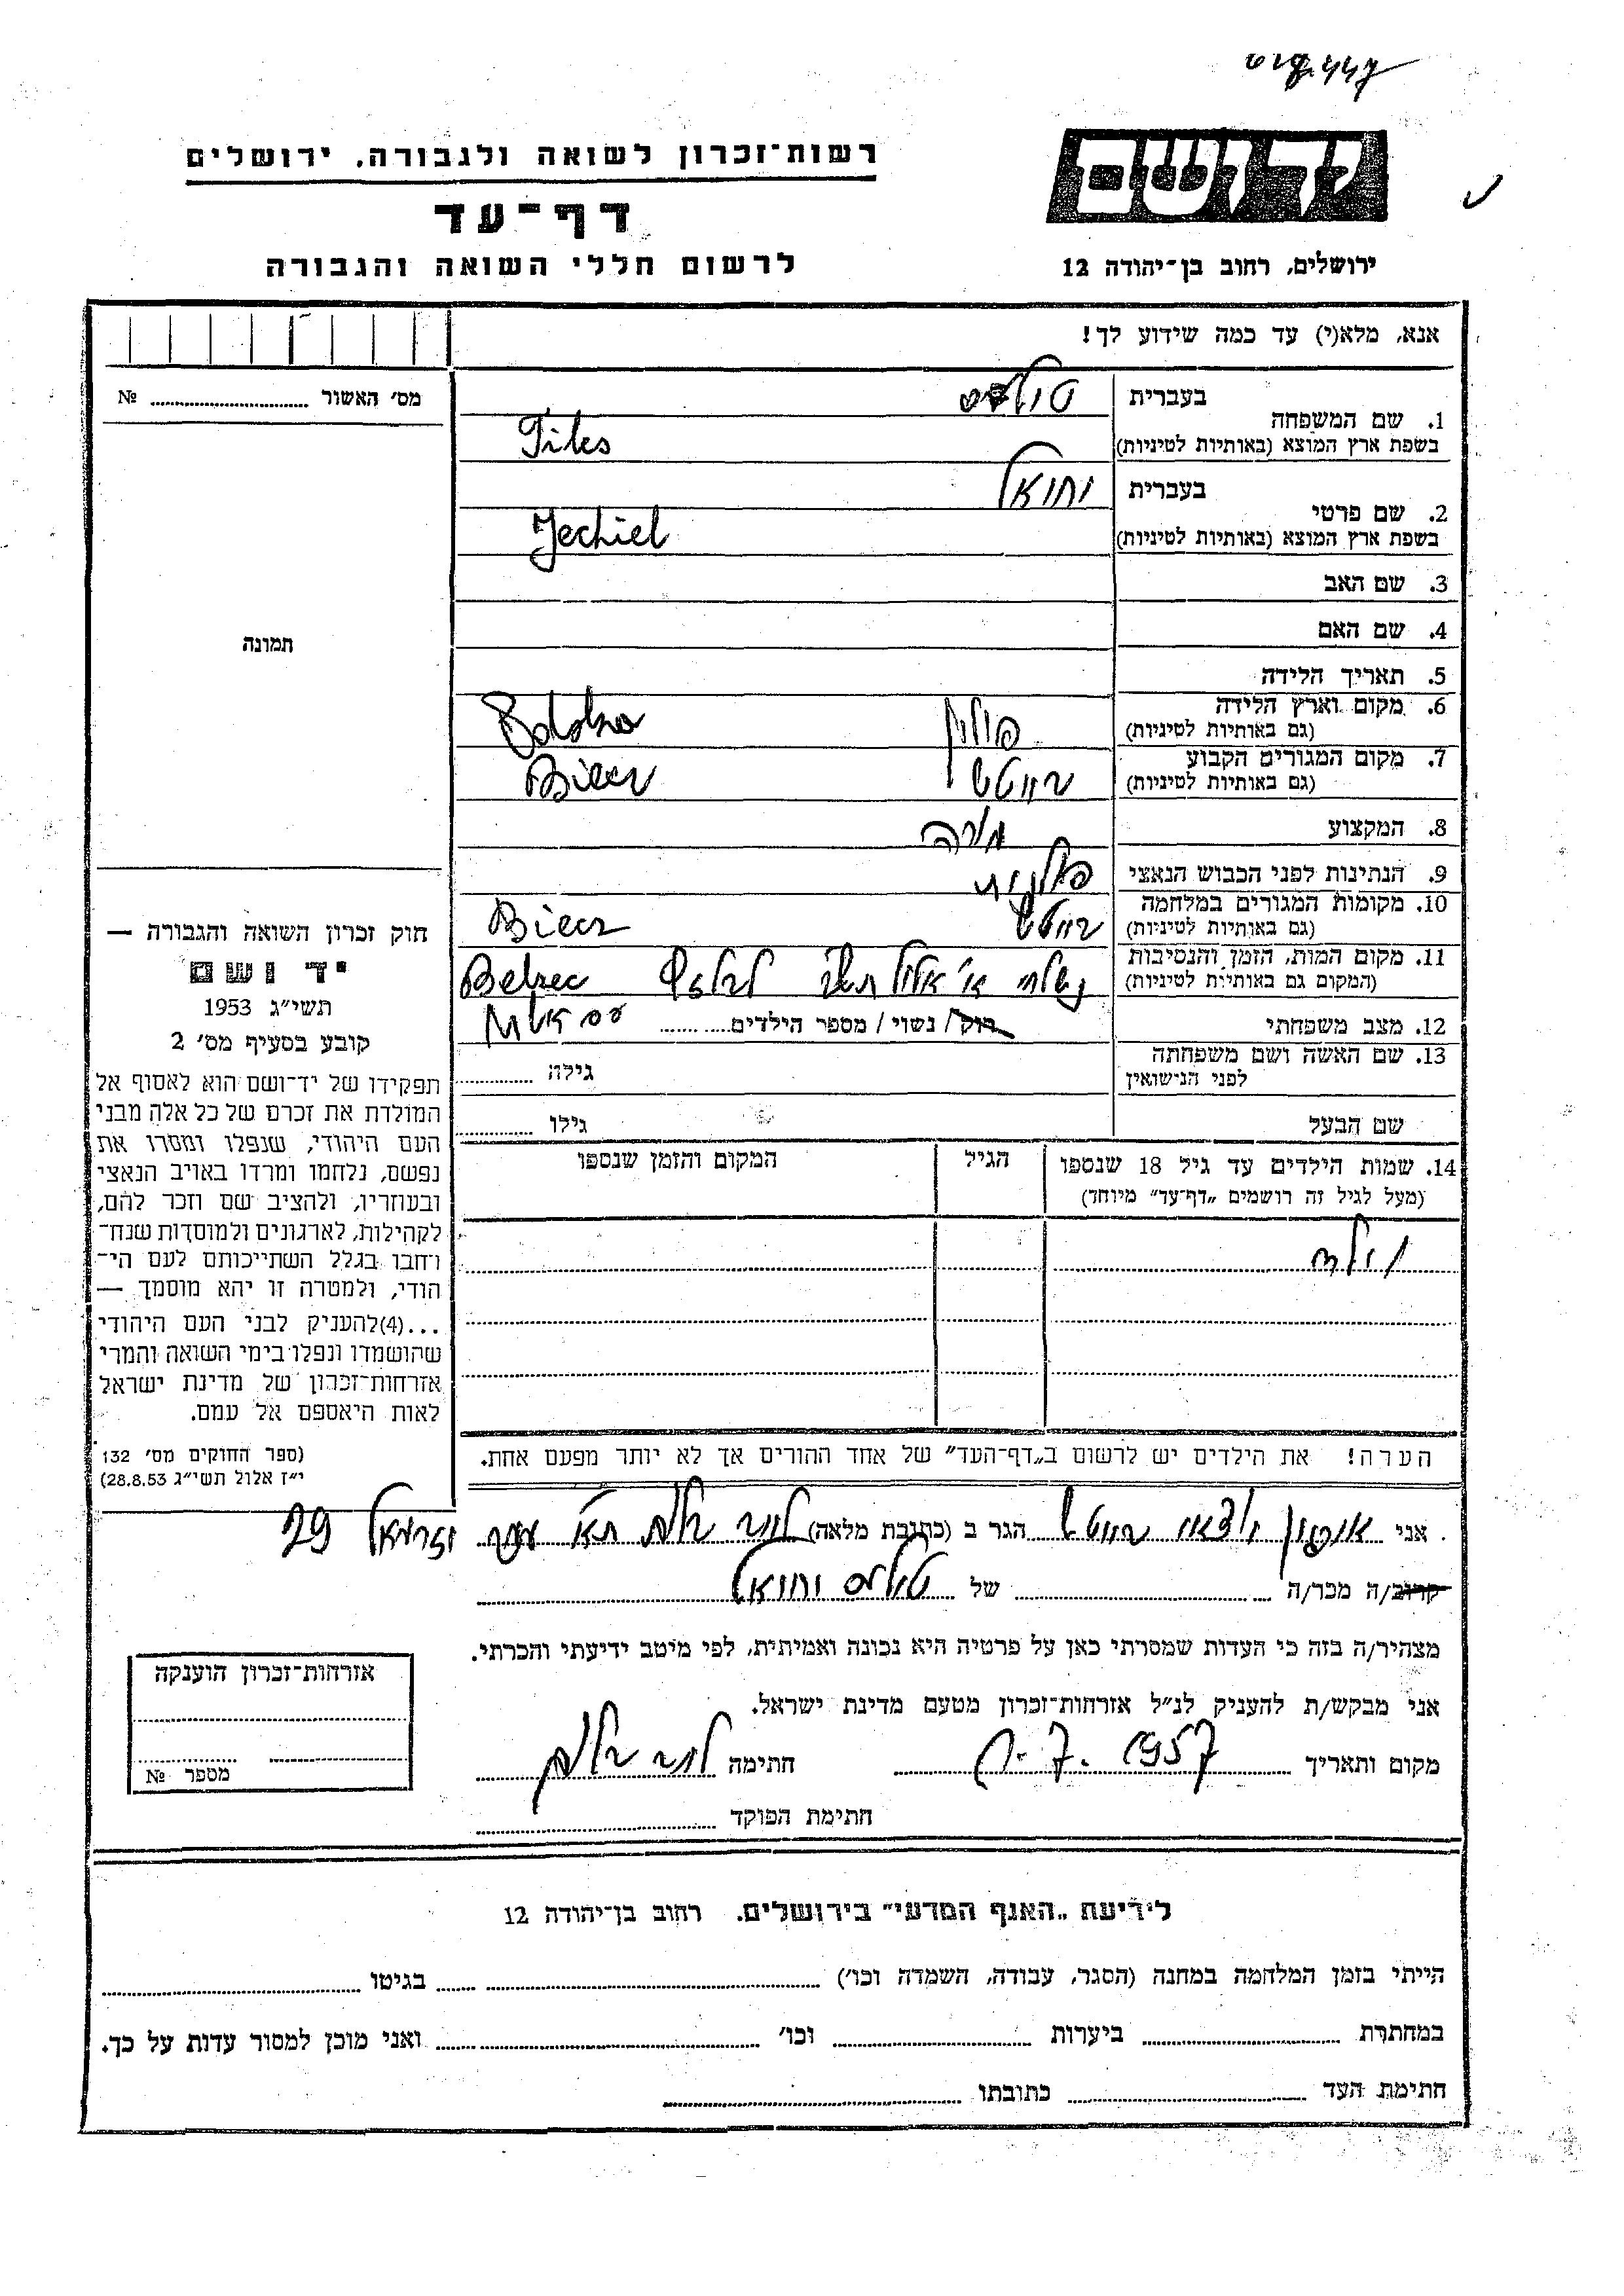 רשות־זכרון לשואה ולגבורה, ירושלים
דף־עד
לרשום חללי השואה והגבורה
ידושם
ירושלים, רחוב בן־יהודה 12
אנא, מלא(י) עד כמה שידוע לך!
מס׳ האשור № 
1. שם המשפחה
בעברית
בשפת ארץ המוצא (באותיות לטיניות) Tiles
2. שם פרטי
בעברית יחיאל
בשפת ארץ המוצא (באותיות לטיניות) Jechiel
3. שם האב
4. שם האם
תמונה
5. תאריך הלידה
6. מקום וארץ הלידה פולין
(גם באותיות לטיניות)
7. מקום המגורים הקבוע Biecz
(גם באותיות לטיניות)
8. המקצוע מורה
9. הנתינות לפני הכבוש הנאצי פולנית
10. מקומות המגורים במלחמה Biecz
(גם באותיות לטיניות)
11. מקום המות, הזמן והנסיבות Belzec
(המקום גם באותיות לטיניות)
12. מצב משפחתי רוק/ נשוי / מספר הילדים
13. שם האשה ושם משפחתה גילה
לפני הנישואין
שם הבעל גילו
14. שמות הילדים עד גיל 18 שנספו הגיל המקום והזמן שנספו
(מעל לגיל זה רושמים „דף־עד״ מיוחד)
הערה! את הילדים יש לרשום ב„דף־העד״ של אחד ההורים אך לא יותר מפעם אחת.
חוק זכרון השואה והגבורה —
יד ושם
תשי״ג 1953
קובע בסעיף מס׳ 2
תפקידו של יד־ושם הוא לאסוף אל
המולדת את זכרם של כל אלה מבני
העם היהודי, שנפלו ומסרו את
נפשם, נלחמו ומרדו באויב הנאצי
ובעוזריו, ולהציב שם וזכר להם,
לקהילות, לארגונים ולמוסדות שנח־
רחבו בגלל השתייכותם לעם הי־
הודי, ולמטרה זו יהא מוסמך —
...(4)להעניק לבני העם היהודי
שהושמדו ונפלו בימי השואה והמרי
אזרחות־זכרון של מדינת ישראל
לאות היאספם אל עמם.
(ספר החוקים מס׳ 132
י״ז אלול תשי״ג 28.8.53)
אני הגר ב (כתובת מלאה) 29
קרוב/ה מכר/ה של טילס יחיאל
מצהיר/ה בזה כי העדות שמסרתי כאן על פרטיה היא נכונה ואמיתית, לפי מיטב ידיעתי והכרתי.
אני מבקש/ת להעניק לנ״ל אזרחות־זכרון מטעם מדינת ישראל.
מקום ותאריך 7. 1957 חתימה
חתימת הפוקד
אזרחות־זכרון הוענקה
מספר №
לידיעת „האגף המדעי״ בירושלים. רחוב בן־יהודה 12
הייתי בזמן המלחמה במחנה (הסגר, עבודה, השמדה וכו׳) בגיטו
במחתרת ביערות וכו׳ ואני מוכן למסור עדות על כך.
חתימת העד כתובתו